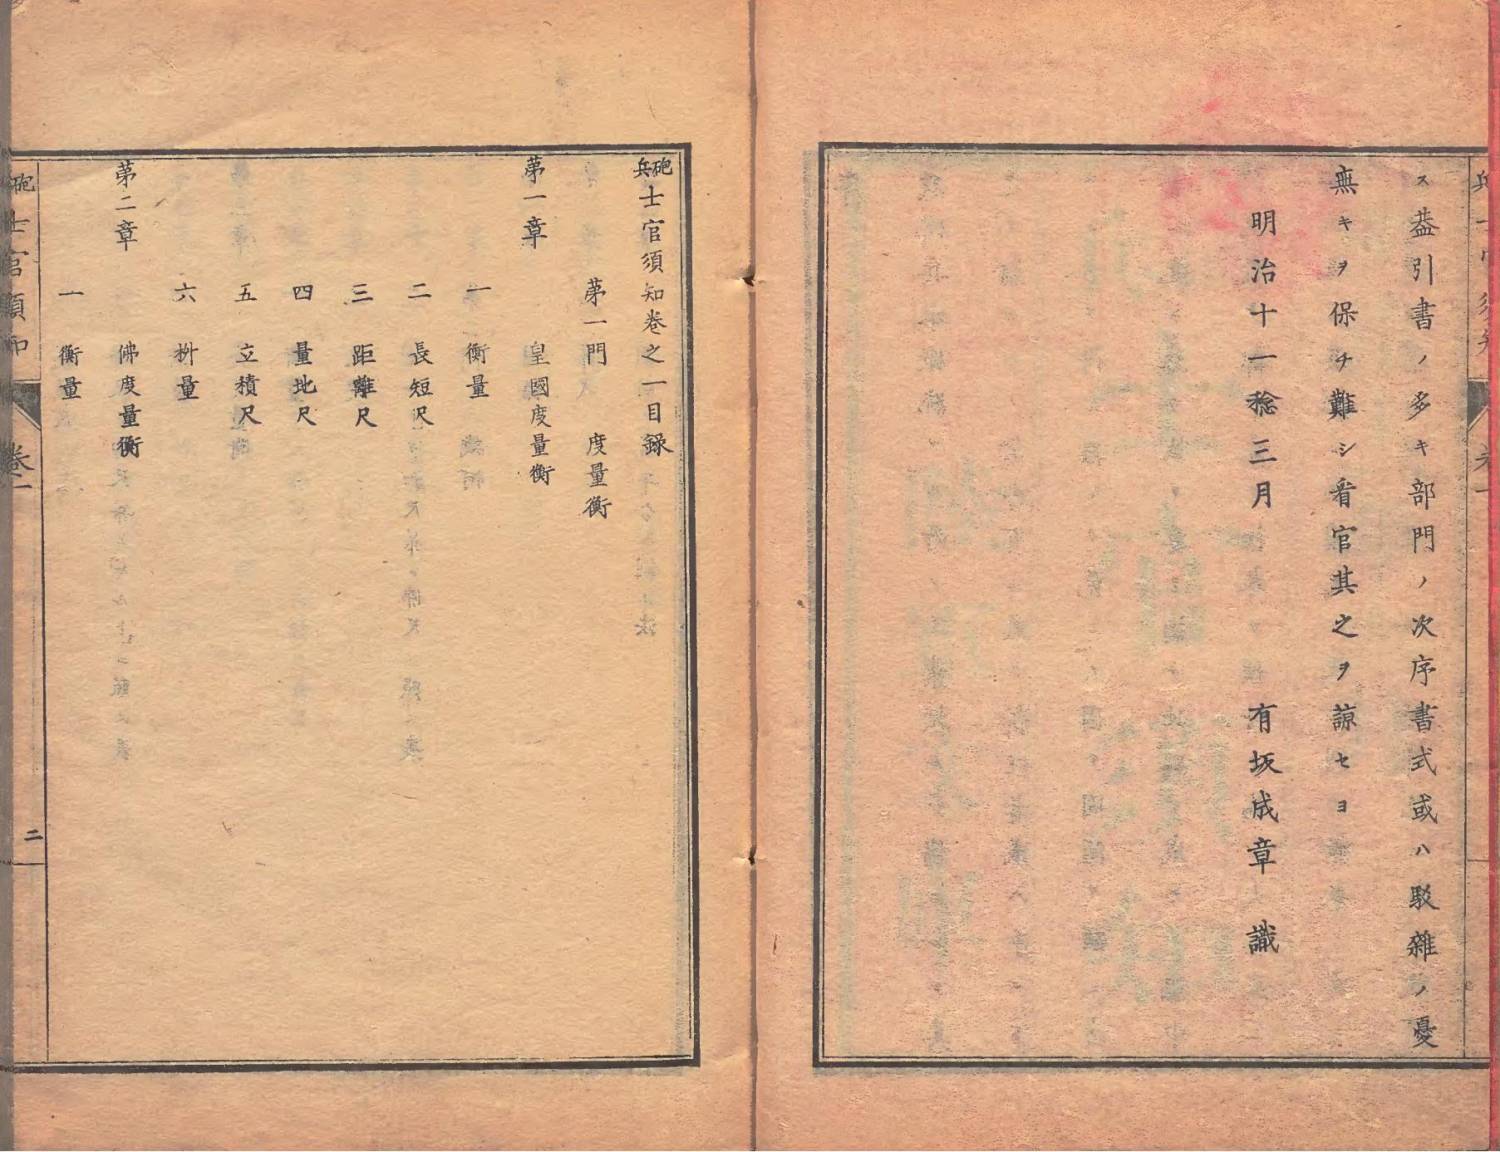 ス葢引書ノ多キ部門ノ次序書式或ハ駁雜ノ憂
無キヲ保チ難シ看官其之ヲ諒セヨ
明治十一稔三月 有坂成章 識
砲兵士官須知卷之一目録
苐一門 度量衡
苐一章 皇國度量衡
一 衡量
二 長短尺
三 距離尺
四 量地尺
五 立積尺
六 枡量
苐二章 佛度量衡
一 衡量
卷一
二